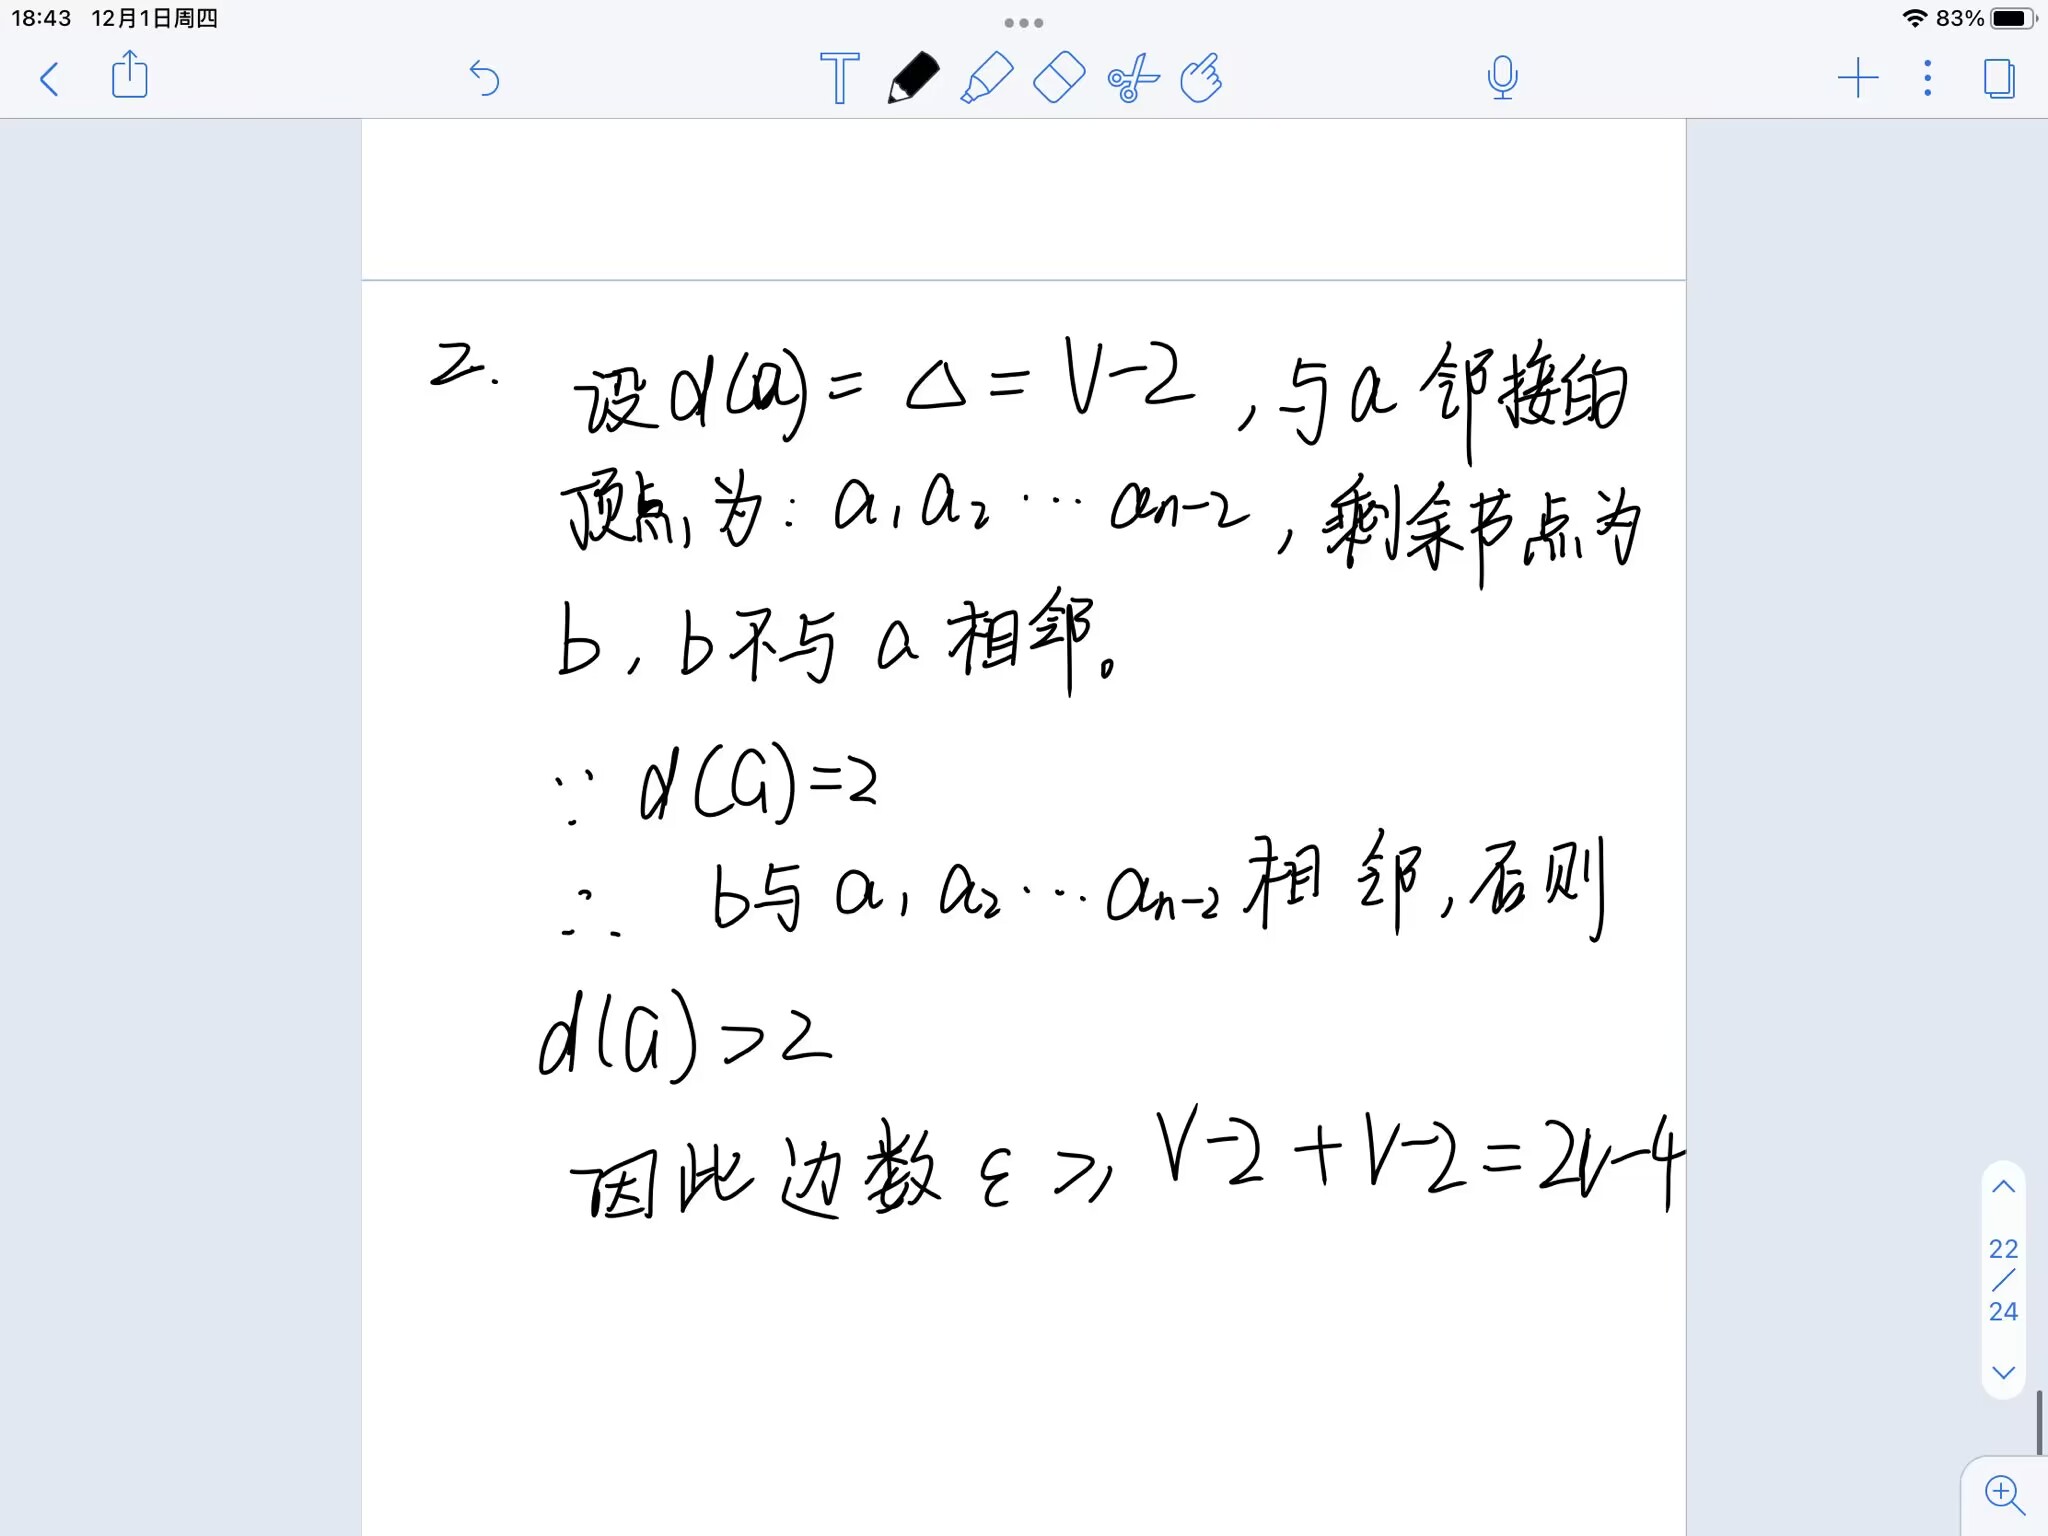 18:43 12月1日周四
83%
T
2. 设d(a) = Δ = V-2 , 与a邻接的
顶点为: a₁ a₂ ⋯ aₙ₋₂ , 剩余节点为
b, b不与a相邻。
∵ d(G)=2
∴ b与a₁ a₂ ⋯ aₙ₋₂ 相邻, 否则
d(G)>2
因此边数 ε ≥ V-2+V-2=2V-4
22
/
24